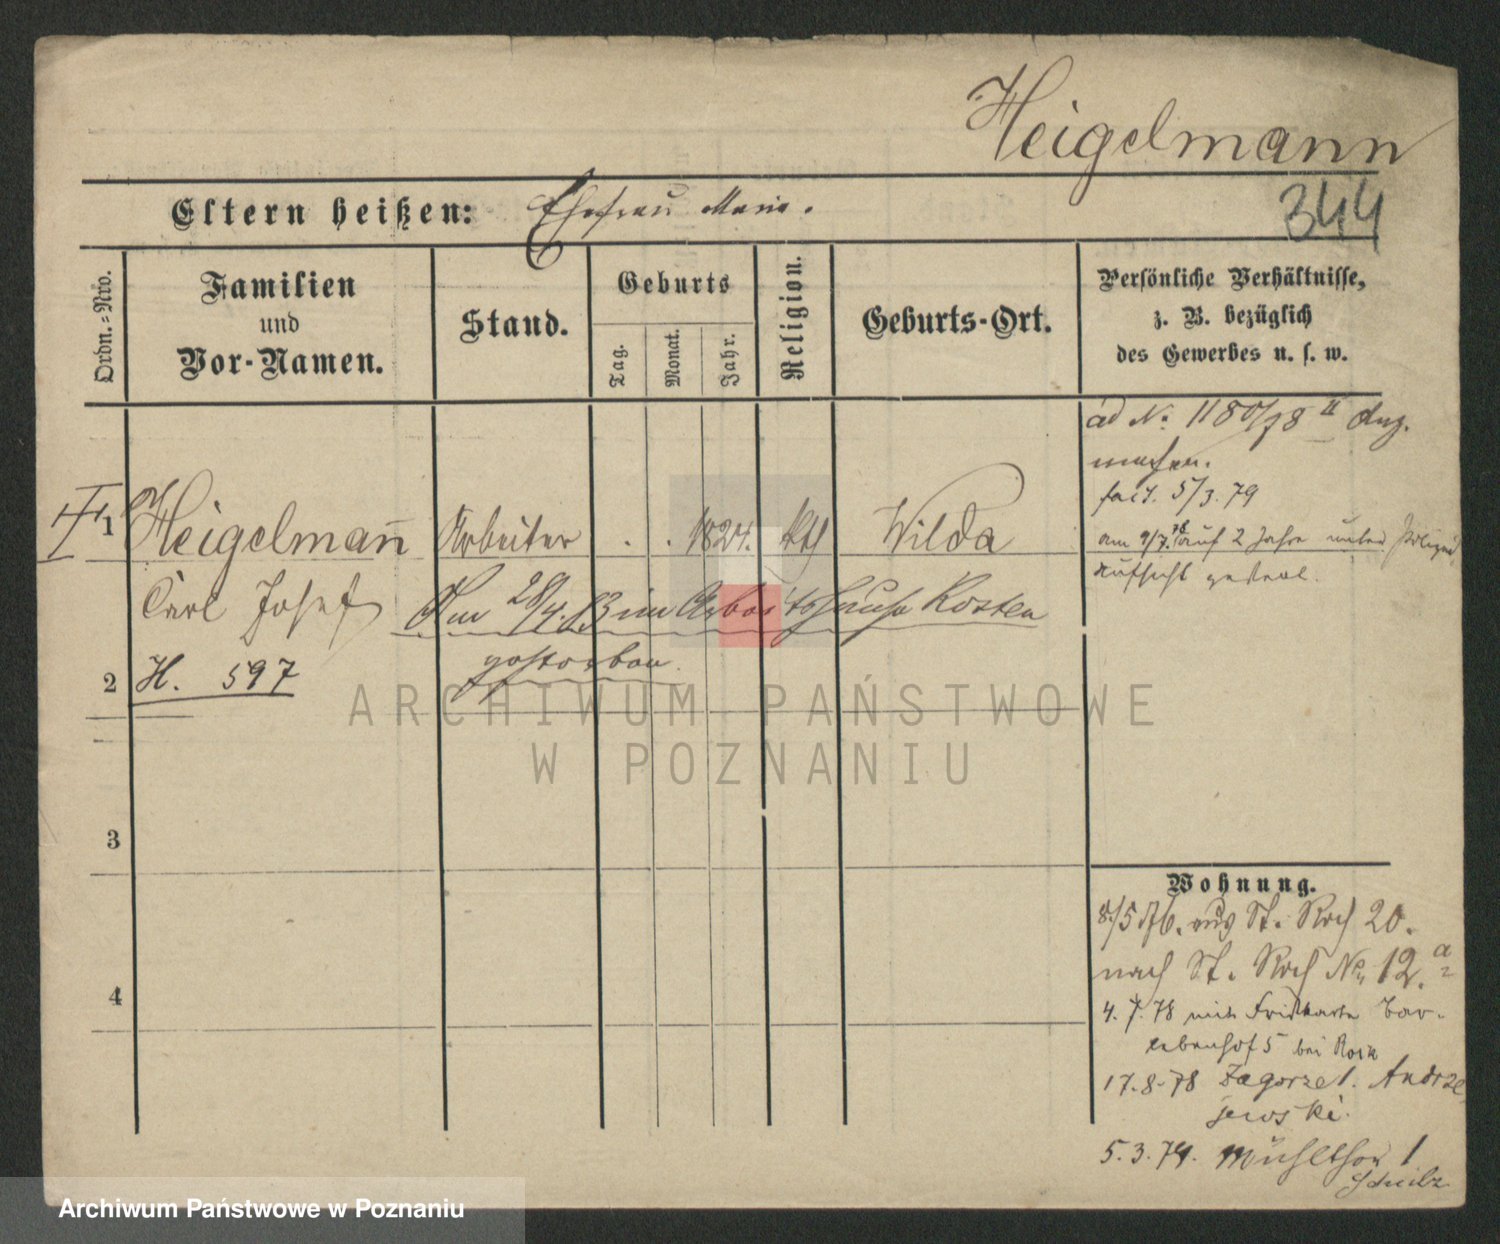 Heigelmann
344
Eltern heißen: Ehefrau Marie.
Ordn.=Nro.
Familien
und
Vor-Namen.
Stand.
Geburts
Tag.
Monat.
Jahr.
Religion.
Geburts-Ort.
Persönliche Verhältnisse,
z. B. bezüglich
des Gewerbes u. s. w.
ad No. 1180/78 II Anz.
machen.
fact. 5/3. 79
1 Heigelmann̄ Arbeiter . . 1824. kth Wilda
am 9/7. 78 auf 2 Jahre unter Polizei
Aufsicht gestellt.
Carl Josef Am 28/4. 83 im Arbeitshause Kosten
gestorben.
2 H. 597
ARCHIWUM PAŃSTWOWE
W POZNANIU
3
4
Wohnung.
8/5 76. aus St. Roch 20.
nach St. Roch No. 12.a
4. 7. 78 mit
lebenhof 5 bei
17.-8-78 Zagorze 1. Andrze
jewski.
5. 3. 79. Mühlthor 1
Archiwum Państwowe w Poznaniu